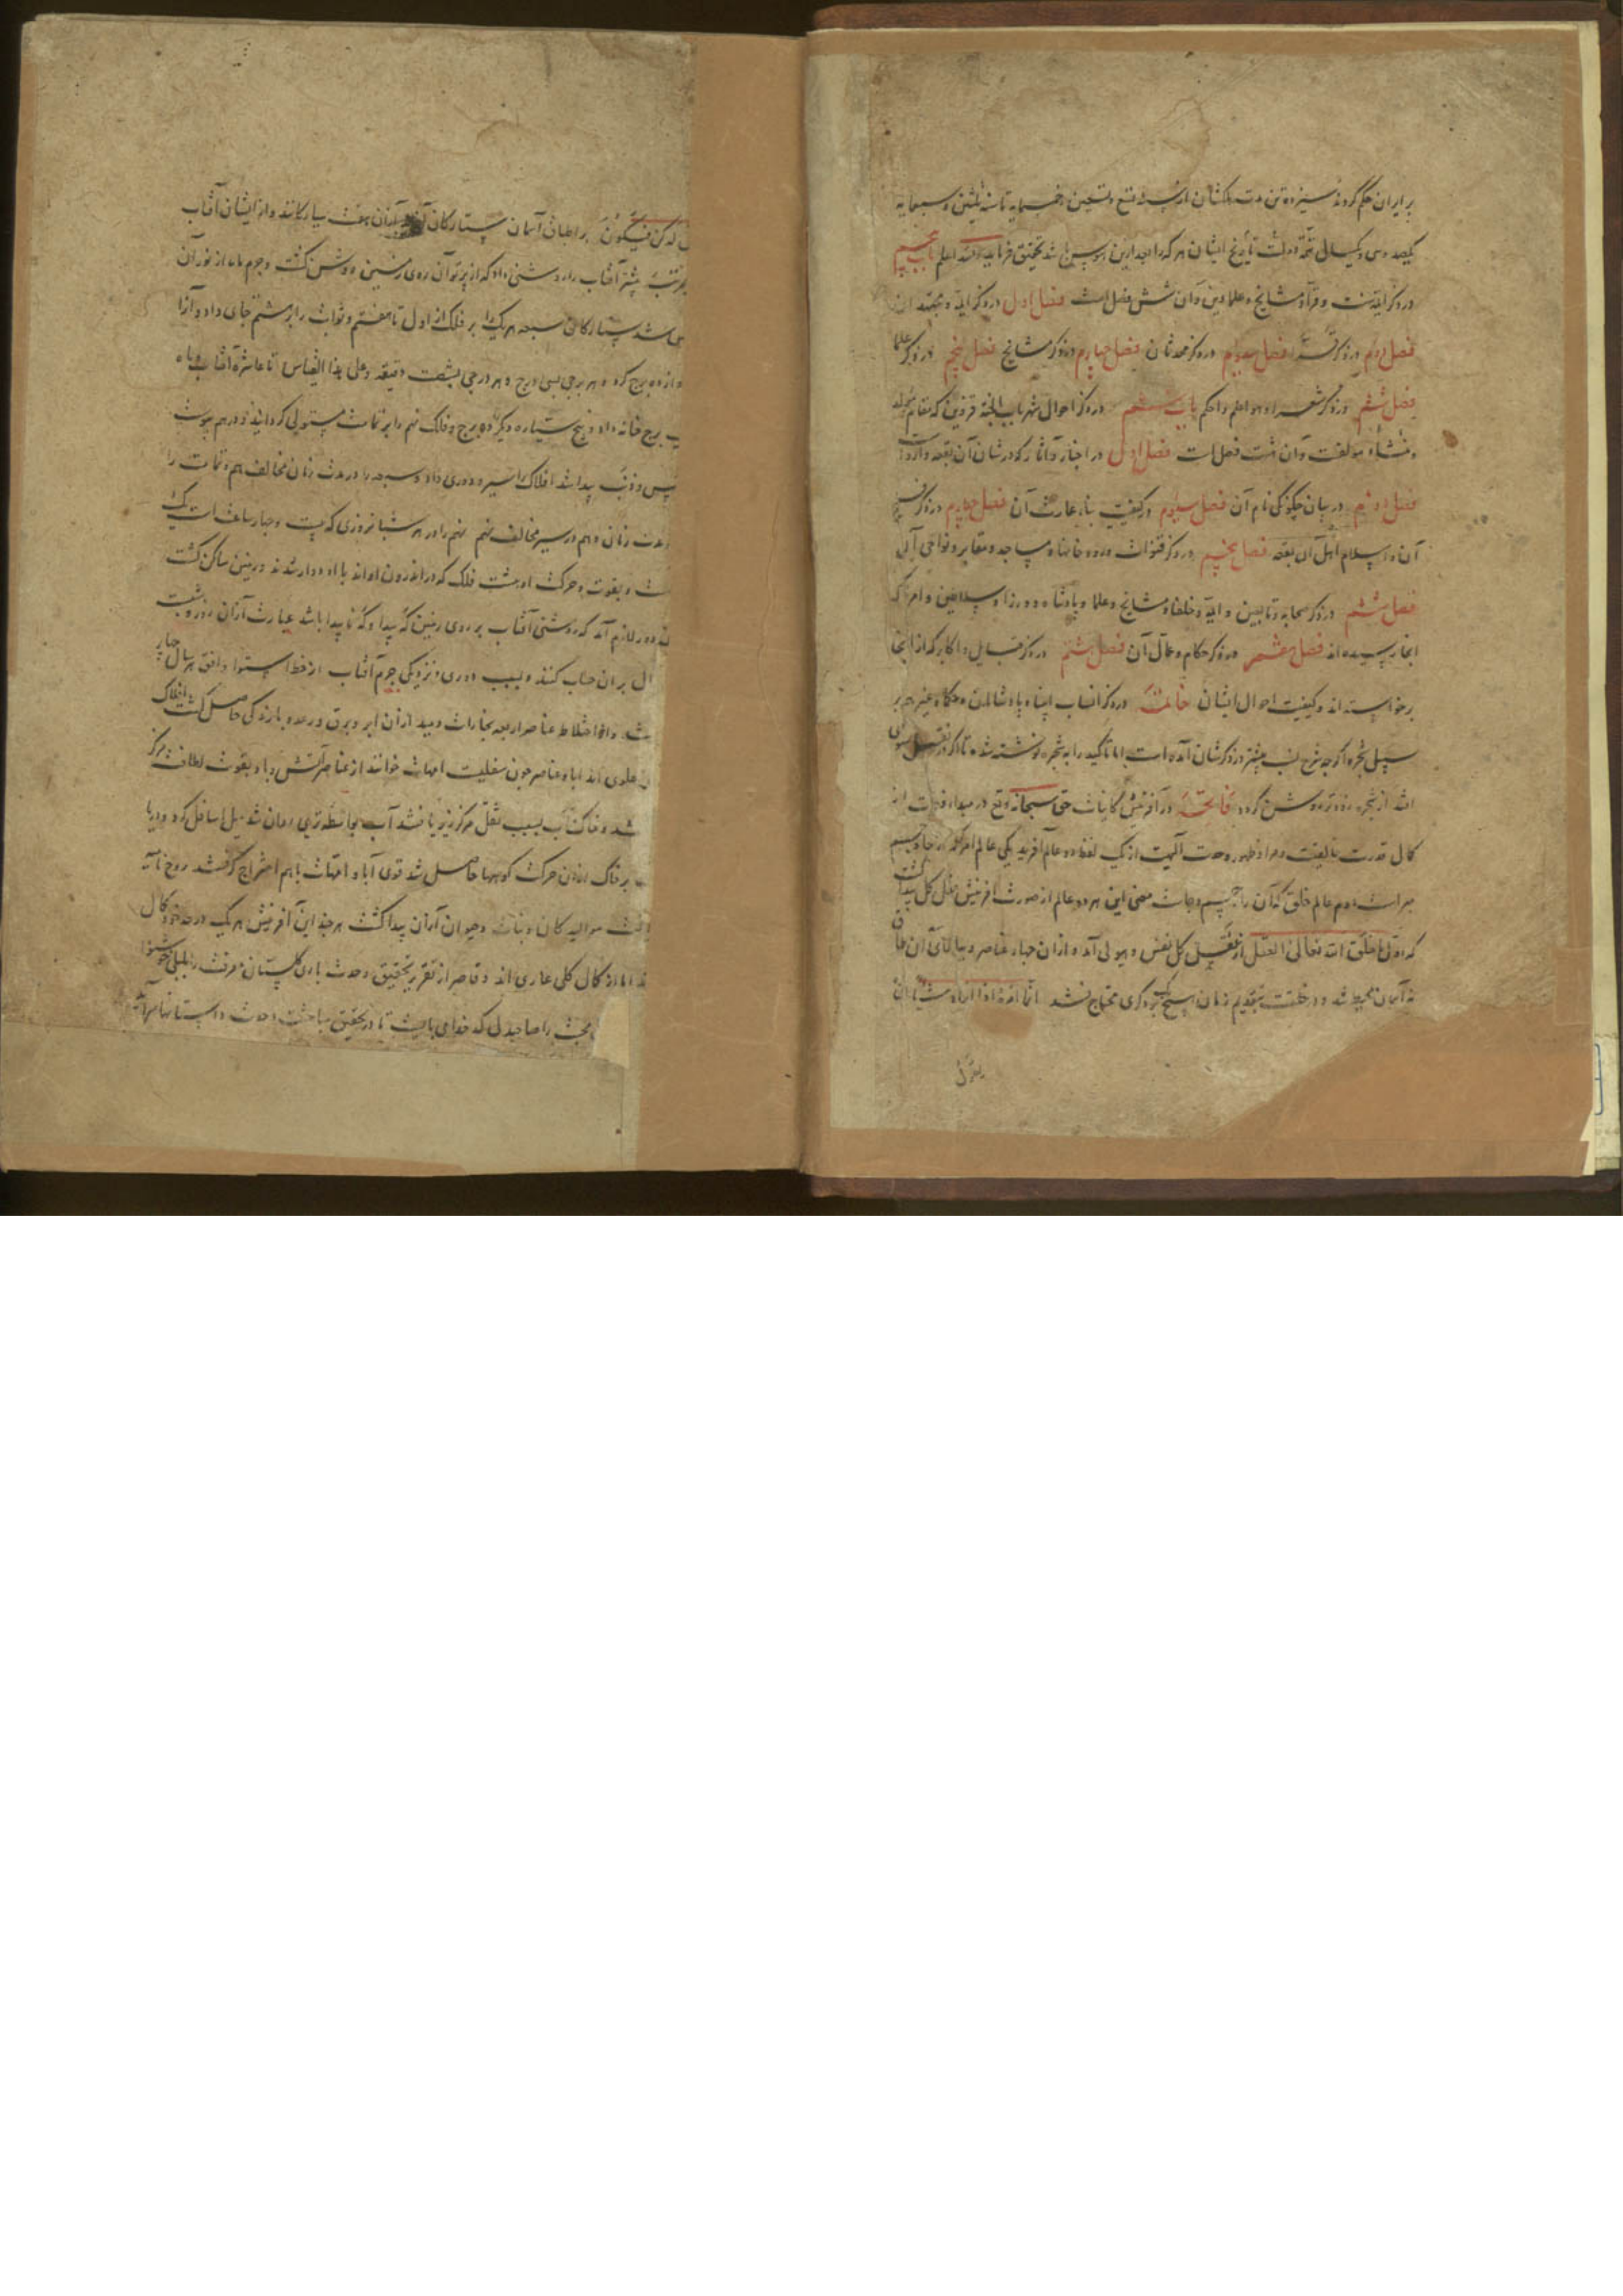 بر ایران حکم کردند سیزده تن مدت ملکشان از سنه تسع و تسعین و خمسمایه تا سنه ثلثین و سبعمایه
یکصد و سی و یکسال تتمه دولت تاریخ ایشان هر که را بعد ازین هوس باشد تحقیق فرماید والله اعلم باب پنجم
در ذکر ایمه سنت و قرآ و مشایخ و علما دین و آن شش فصل است فصل اول در ذکر ایمه و مجتهدان
فصل دوم در ذکر قرآ فصل سیوم در ذکر محدثان فصل چهارم در ذکر مشایخ فصل پنجم در ذکر علما
فصل ششم در ذکر شعرا و هو اعلم و احکم باب ششم در ذکر احوال شهر باب الجنه قزوین که مقام مولد
و منشاء مولفست و آن هشت فصل است فصل اول در اخبار و آثار که در شان آن بقعه وارد است
فصل دویم در بیان چگونگی نام آن فصل سیوم در کیفیت بناء عمارت آن فصل چهارم در ذکر فتح
آن و اسلام اهل آن بقعه فصل پنجم در ذکر قنوات و رودخانها و مساجد و مقابر و نواحی آن
فصل ششم در ذکر صحابه و تابعین و ایمه و خلفا و مشایخ و علما و پادشاه و وزرا و سلاطین و امرا که
انجا رسیده اند فصل هفتم در ذکر حکام و عمال آن فصل هشتم در ذکر قبایل و اکابر که از انجا
برخواسته اند و کیفیت احوال ایشان خاتمه در ذکر انساب انبیاء پادشاهان و حکماء غیرهم بر
سبیل شجره اگرچه شرح نسب پیشتر در ذکرشان آمده است اما تاکید را به شجره نوشته شده تا اگر در نقل سهوی
افتد از شجره زودتر روشن گردد فاتحه در آفرینش کاینات حق سبحانه و تع در مبداء فطرت از
کمال قدرت بالغیت و مراد ظهور وحدت الهیت از یک لفظ دو عالم آفرید یکی عالم امر که از جا و جسم
مبراست دوم عالم خلق که آن را جسم و جاست معنی این هر دو عالم از صورت آفرینش عقل کل پیدا گشت
که اول ما خلق الله تعالی العقل از عقل کل نفس و هیولی آمد و از آن چهار عناصر و بیالای آن طاق
نه آسمان محیط شد و در خلقت بتقدیم زمان هیچ یک بر دگری محتاج نشد انما امره اذا اراد شیئا ان
یقول
له کن فیکون بر اطباق آسمان ستارگان آفرید از آن هفت سیارگانند و از ایشان آفتاب
بمرتبت پیشتر آفتاب را روشنی داد که از پرتو آن روی زمین روشن گشت و جرم ماه از نور آن
شد ستارگان سبعه هر یک را بر فلک از اول تا هفتم و ثوابت را بر هشتم جای داد و آنرا
دوازده برج کرد و هر برجی بسی درج و هر درجی بشصت دقیقه و علی هذا القیاس تا عاشره آفتاب و ماه
برج خانه داد و پنج سیاره دیگر ده برج و فلک نهم را بر تمامت مستولی گردانید و در هم پیوست
و ذنب پیدا شد افلاک را سیر و دوری داد و سبعه را در مدت زمان مخالف هم و تمامت را
مدت زمان و هم در سیر مخالف نهم نهم را در هر شبانروزی که بیست و چهار ساعت است یک
و بقوت و حرکت او هشت فلک که در اندرون او اند با او دوار شدند و زمین ساکن گشت
دور لازم آمد که روشنی آفتاب بر روی زمین گه پیدا و گه ناپیدا باشد عبارت از آن روز و شبست
بر آن حساب کنند و بسبب دوری و نزدیکی جرم آفتاب از خط استوا و افق هر سال چهار
و از اختلاط عناصر اربعه بخارات دمید از آن ابر و برق و رعد و بارندگی حاصل گشت افلاک
علوی اند آبا و عناصر چون سفلیست امهات خوانند از عناصر آتش و باد بقوت لطافت مرکز
شد و خاک و آب بسبب ثقل مرکز زیر یافتند آب بواسطه تری روان شد میل اسافل کرد و دریا
بر خاک از آن حرکت کوهها حاصل شد قوی آبا و امهات باهم امتزاج گرفتند روح نامیه
موالید کان و نبات و حیوان از آن پیدا گشت هر چند این آفرینش هر یک در حد خود کمال
اما از کمال کلی عاری اند و قاصر از تقریر تحقیق وحدت باری گلستان معرفت را بلبلی خوشنوا
محبت را صاحبدل که خدای بایست تا در تحقیق مباحث احدیت داستانها سراید